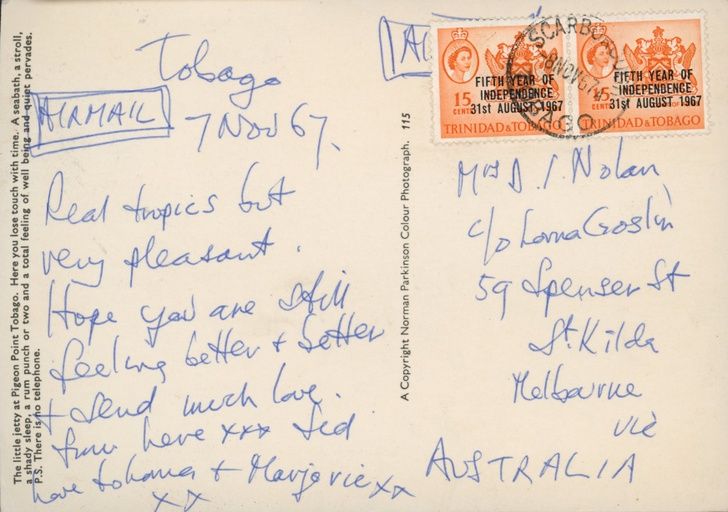 The little jetty at Pigeon Point Tobago. Here you lose touch with time. A seabath, a stroll,
a shady sleep, a rum punch or two and a total feeling of well being and quiet pervades.
P.S. There is no telephone.
Tobago
AIRMAIL
7 NOV 67.
Real tropics but
very pleasant.
Hope you are still
feeling better & better
+ send much love.
from here xxx Sid
love to Lorna + Marjorie xx
xx
A Copyright Norman Parkinson Colour Photograph. 115
FIFTH YEAR OF
INDEPENDENCE
31st AUGUST 1967
15
CENTS
TRINIDAD & TOBAGO
FIFTH YEAR OF
INDEPENDENCE
31st AUGUST 1967
15
TRINIDAD & TOBAGO
NOV 67
Mrs D. I. Nolan,
c/o Lorna Goslin
59 Spenser St
St. Kilda
Melbourne
Vic
AUSTRALIA